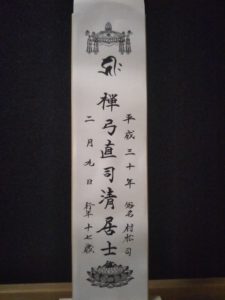 平成三十年 俗名 村松司
禅弓直司清居士
二月九日 行年 十七歳